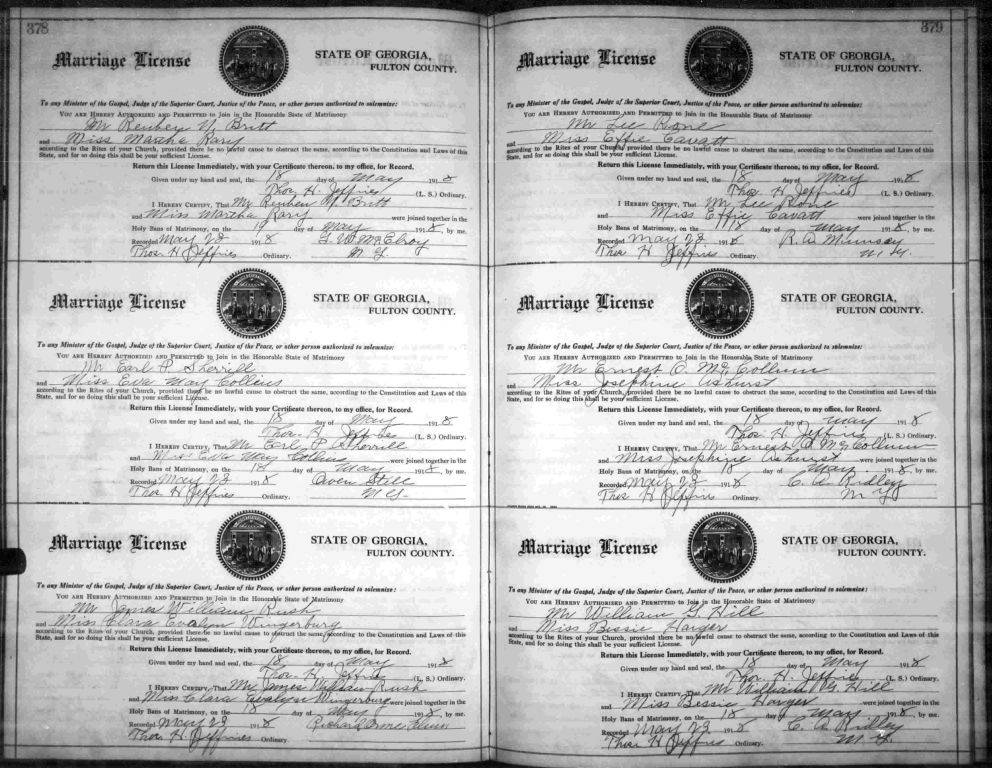 378
Marriage License
STATE OF GEORGIA,
FULTON COUNTY.
To any Minister of the Gospel, Judge of the Superior Court, Justice of the Peace, or other person authorized to solemnize:
YOU ARE HEREBY AUTHORIZED AND PERMITTED to Join in the Honorable State of Matrimony
Mr Reuben M Britt
and Miss Martha Rary
according to the Rites of your Church, provided there be no lawful cause to obstruct the same, according to the Constitution and Laws of this
State, and for so doing this shall be your sufficient License.
Return this License Immediately, with your Certificate thereon, to my office, for Record.
Given under my hand and seal, the 18 day of May 1918
Thos. H. Jeffries (L. S.) Ordinary.
I HEREBY CERTIFY, That Mr Reuben M. Britt
and Miss Martha Rary were joined together in the
Holy Bans of Matrimony, on the 19 day of May 1918, by me.
Recorded May 23 1918 G. W. McElroy
Thos H Jeffries Ordinary.
Marriage License
STATE OF GEORGIA,
FULTON COUNTY.
To any Minister of the Gospel, Judge of the Superior Court, Justice of the Peace, or other person authorized to solemnize:
YOU ARE HEREBY AUTHORIZED AND PERMITTED to Join in the Honorable State of Matrimony
Mr Earl P. Sherrill
and Miss Eva May Collins
according to the Rites of your Church, provided there be no lawful cause to obstruct the same, according to the Constitution and Laws of this
State, and for so doing this shall be your sufficient License.
Return this License Immediately, with your Certificate thereon, to my office, for Record.
Given under my hand and seal, the 18 day of May 1918
Thos. H. Jeffries (L. S.) Ordinary.
I HEREBY CERTIFY, That Mr Earl P. Sherrill
and Miss Eva May Collins were joined together in the
Holy Bans of Matrimony, on the 18 day of May 1918, by me.
Recorded May 23 1918 Owen Still
Thos H Jeffries Ordinary. M G.
Marriage License
STATE OF GEORGIA,
FULTON COUNTY.
To any Minister of the Gospel, Judge of the Superior Court, Justice of the Peace, or other person authorized to solemnize:
YOU ARE HEREBY AUTHORIZED AND PERMITTED to Join in the Honorable State of Matrimony
Mr James William Rush
and Miss Clara Evalyn Wingerburg
according to the Rites of your Church, provided there be no lawful cause to obstruct the same, according to the Constitution and Laws of this
State, and for so doing this shall be your sufficient License.
Return this License Immediately, with your Certificate thereon, to my office, for Record.
Given under my hand and seal, the 18 day of May 1918
Thos. H. Jeffries (L. S.) Ordinary.
I HEREBY CERTIFY, That Mr James William Rush
and Miss Clara Evalyn Wingerburg were joined together in the
Holy Bans of Matrimony, on the 18 day of May 1918, by me.
Recorded May 23 1918 Richard Orme Flinn
Thos H. Jeffries Ordinary.
379
Marriage License
STATE OF GEORGIA,
FULTON COUNTY.
To any Minister of the Gospel, Judge of the Superior Court, Justice of the Peace, or other person authorized to solemnize:
YOU ARE HEREBY AUTHORIZED AND PERMITTED to Join in the Honorable State of Matrimony
Mr Lee Rone
and Miss Effie Cavatt
according to the Rites of your Church, provided there be no lawful cause to obstruct the same, according to the Constitution and Laws of this
State, and for so doing this shall be your sufficient License.
Return this License Immediately, with your Certificate thereon, to my office, for Record.
Given under my hand and seal, the 18 day of May 1918
Thos. H. Jeffries (L. S.) Ordinary.
I HEREBY CERTIFY, That Mr Lee Rone
and Miss Effie Cavatt were joined together in the
Holy Bans of Matrimony, on the 18 day of May 1918, by me.
Recorded May 23 1918 R. A. Munsey
Thos H Jeffries Ordinary. M G.
Marriage License
STATE OF GEORGIA,
FULTON COUNTY.
To any Minister of the Gospel, Judge of the Superior Court, Justice of the Peace, or other person authorized to solemnize:
YOU ARE HEREBY AUTHORIZED AND PERMITTED to Join in the Honorable State of Matrimony
Mr Ernest O. McCollum
and Miss Josephine Ashurst
according to the Rites of your Church, provided there be no lawful cause to obstruct the same, according to the Constitution and Laws of this
State, and for so doing this shall be your sufficient License.
Return this License Immediately, with your Certificate thereon, to my office, for Record.
Given under my hand and seal, the 18 day of May 1918
Thos. H. Jeffries (L. S.) Ordinary.
I HEREBY CERTIFY, That Mr Ernest O. McCollum
and Miss Josephine Ashurst were joined together in the
Holy Bans of Matrimony, on the 18 day of May 1918, by me.
Recorded May 23 1918 C. A. Ridley
Thos H Jeffries Ordinary. M G
Marriage License
STATE OF GEORGIA,
FULTON COUNTY.
To any Minister of the Gospel, Judge of the Superior Court, Justice of the Peace, or other person authorized to solemnize:
YOU ARE HEREBY AUTHORIZED AND PERMITTED to Join in the Honorable State of Matrimony
Mr William G Hill
and Miss Bessie Harger
according to the Rites of your Church, provided there be no lawful cause to obstruct the same, according to the Constitution and Laws of this
State, and for so doing this shall be your sufficient License.
Return this License Immediately, with your Certificate thereon, to my office, for Record.
Given under my hand and seal, the 18 day of May 1918
Thos. H. Jeffries (L. S.) Ordinary.
I HEREBY CERTIFY, That Mr William G Hill
and Miss Bessie Harger were joined together in the
Holy Bans of Matrimony, on the 18 day of May 1918, by me.
Recorded May 23 1918 C. A. Ridley
Thos H Jeffries Ordinary. M. G.